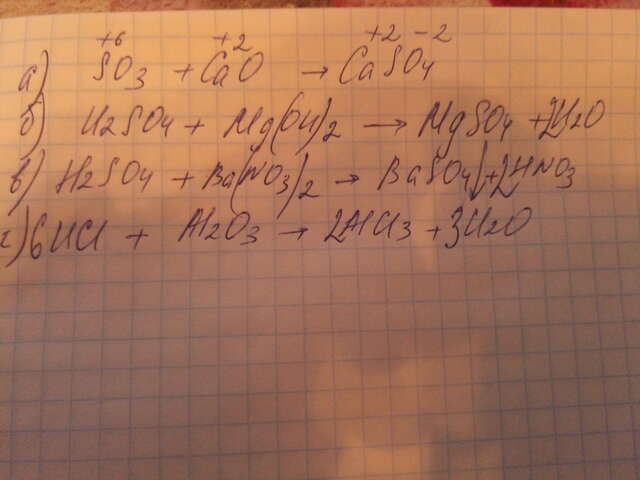 +6 +2 +2 -2
а) SO3 + CaO → CaSO4
б) H2SO4 + Mg(OH)2 → MgSO4 + 2H2O
в) H2SO4 + Ba(NO3)2 → BaSO4↓ + 2HNO3
г) 6HCl + Al2O3 → 2AlCl3 + 3H2O